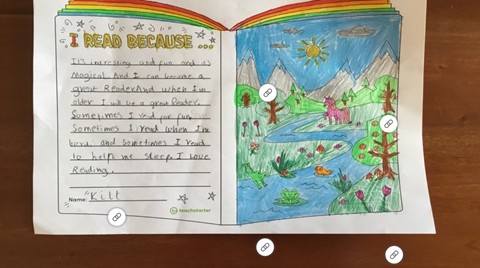 I READ BECAUSE...
It's interesting and fun and it's
Magical And I can become a
great Reader And when I'm
older I will be a great Reader.
Sometimes I read for fun,
Sometimes I read when I'm
bord, and sometimes I read
to help me sleep. I Love
Reading.
Name: Kilt
teachstarter